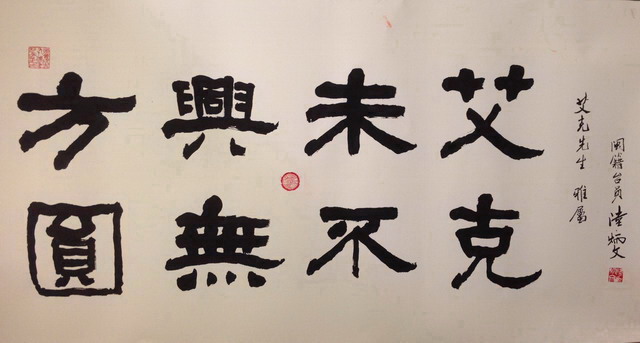 閩籍台員 陸炳文
艾克先生 雅屬
艾克
未不
興無
方圓